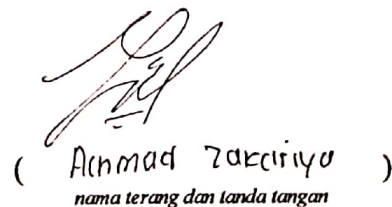 ( Achmad Zakariya )
nama terang dan tanda tangan